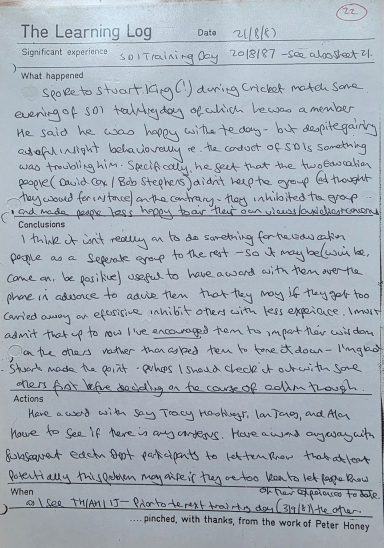 22
The Learning Log Date 21/8/87
Significant experience SDI Training Day 20/8/87 - See also sheet 21.
What happened
Spoke to Stuart King (!) during Cricket match same
evening of SDI training day of which he was a member
He said he was happy with the day - but despite gaining
useful insight behaviourally ie. the conduct of SDIs something
was troubling him. Specifically, he feels that the two education
people (David Cox / Bob Stephens) didn't help the group (I'd thought
they would for instance) on the contrary - they inhibited the group
and made people less happy to air their own views/
Conclusions
I think it isn't really on to do something for the education
people as a seperate group to the rest - so it may be (
come on, be positive) useful to have a word with them over the
phone in advance to advise them that they may if they get too
carried away or effusive inhibit others with less experience. I must
admit that up to now I've encouraged them to impart their wisdom
on the others rather than asked them to tone it down - I'm glad
Stuart made the point - perhaps I should check it out with some
others first before deciding on the course of action though.
Actions
Have a word with say Tracy Ian Jones, and Alan
to see if there is any consensus. Have a word anyway with
subsequent Dept participants to let them know that at least
potentially this problem may arise if they're too keen to let people know
of their experiences to date.
When
as I see TH/AH/IJ - Prior to the next training day (3/9/87) the other.
....pinched, with thanks, from the work of Peter Honey